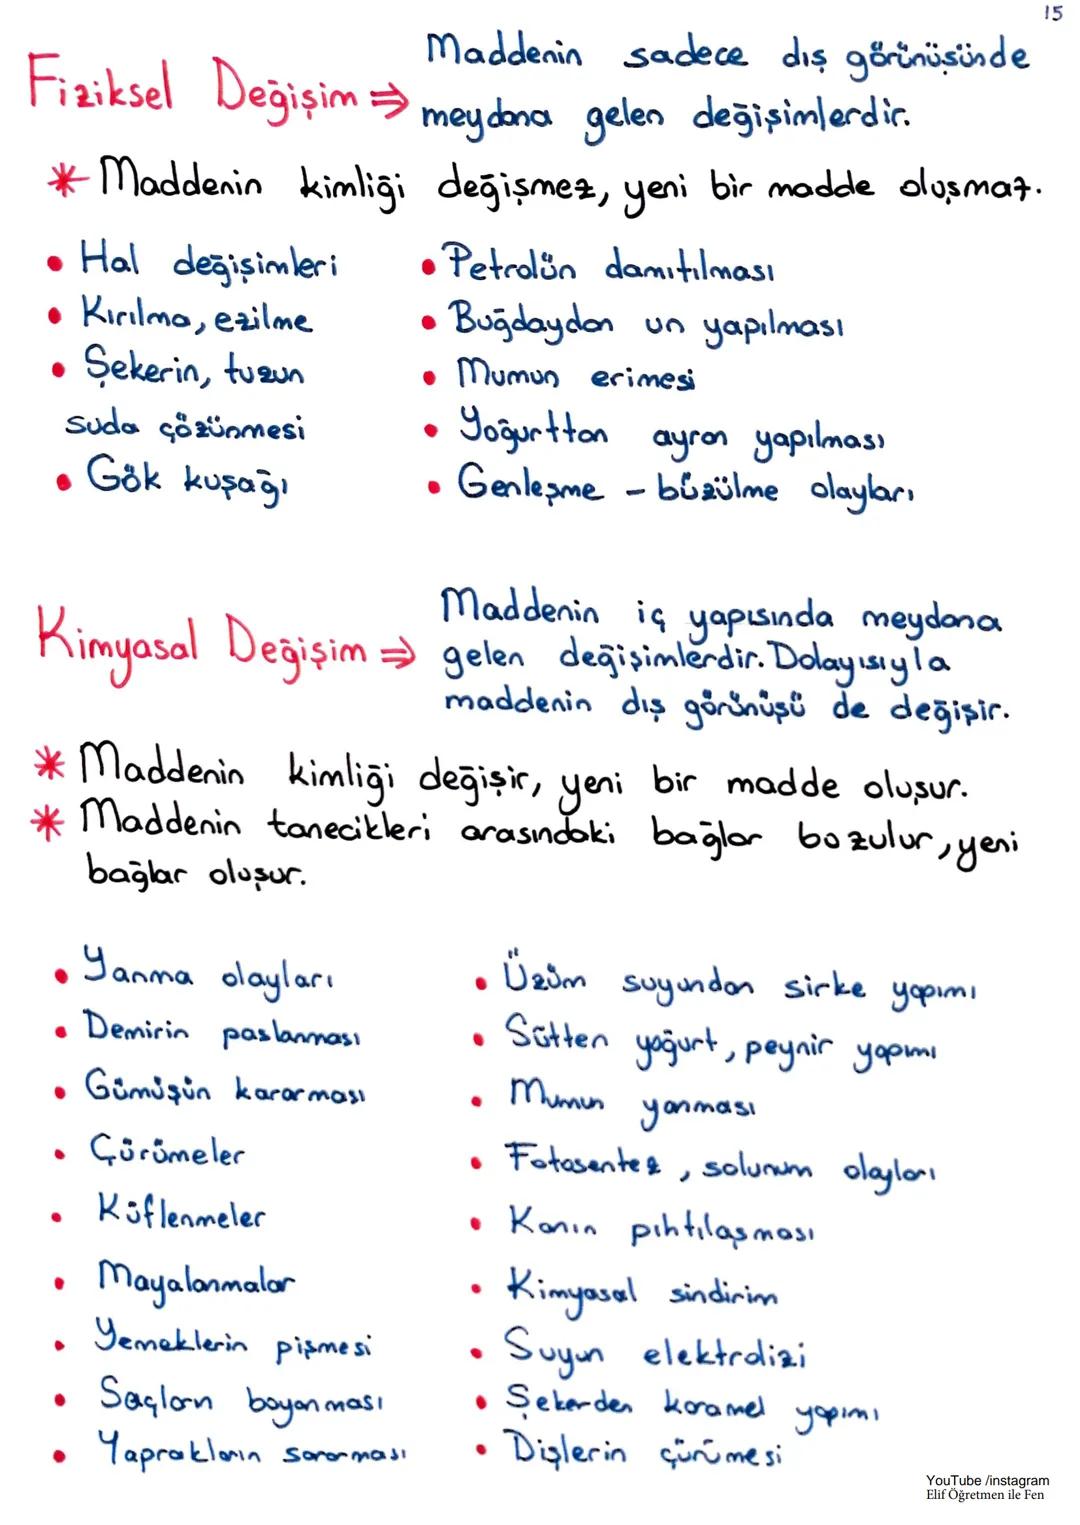 15
Fiziksel Değişim ⇒ Maddenin sadece dış görünüşünde
meydana gelen değişimlerdir.
* Maddenin kimliği değişmez, yeni bir madde oluşmaz.
• Hal değişimleri
• Kırılma, ezilme
• Şekerin, tuzun
suda çözünmesi
• Gök kuşağı
• Petrolün damıtılması
• Buğdaydan un yapılması
• Mumun erimesi
• Yoğurttan ayran yapılması
• Genleşme - büzülme olayları
Kimyasal Değişim ⇒ Maddenin iç yapısında meydana
gelen değişimlerdir. Dolayısıyla
maddenin dış görünüşü de değişir.
* Maddenin kimliği değişir, yeni bir madde oluşur.
* Maddenin tanecikleri arasındaki bağlar bozulur, yeni
bağlar oluşur.
• Yanma olayları
• Demirin paslanması
• Gümüşün kararması
• Çürümeler
• Küflenmeler
• Mayalanmalar
• Yemeklerin pişmesi
• Saçların boyanması
• Yaprakların sararması
• Üzüm suyundan sirke yapımı
• Sütten yoğurt, peynir yapımı
• Mumun yanması
• Fotosentez, solunum olayları
• Kanın pıhtılaşması
• Kimyasal sindirim
• Suyun elektrolizi
• Şekerden karamel yapımı
• Dişlerin çürümesi
YouTube /instagram
Elif Öğretmen ile Fen